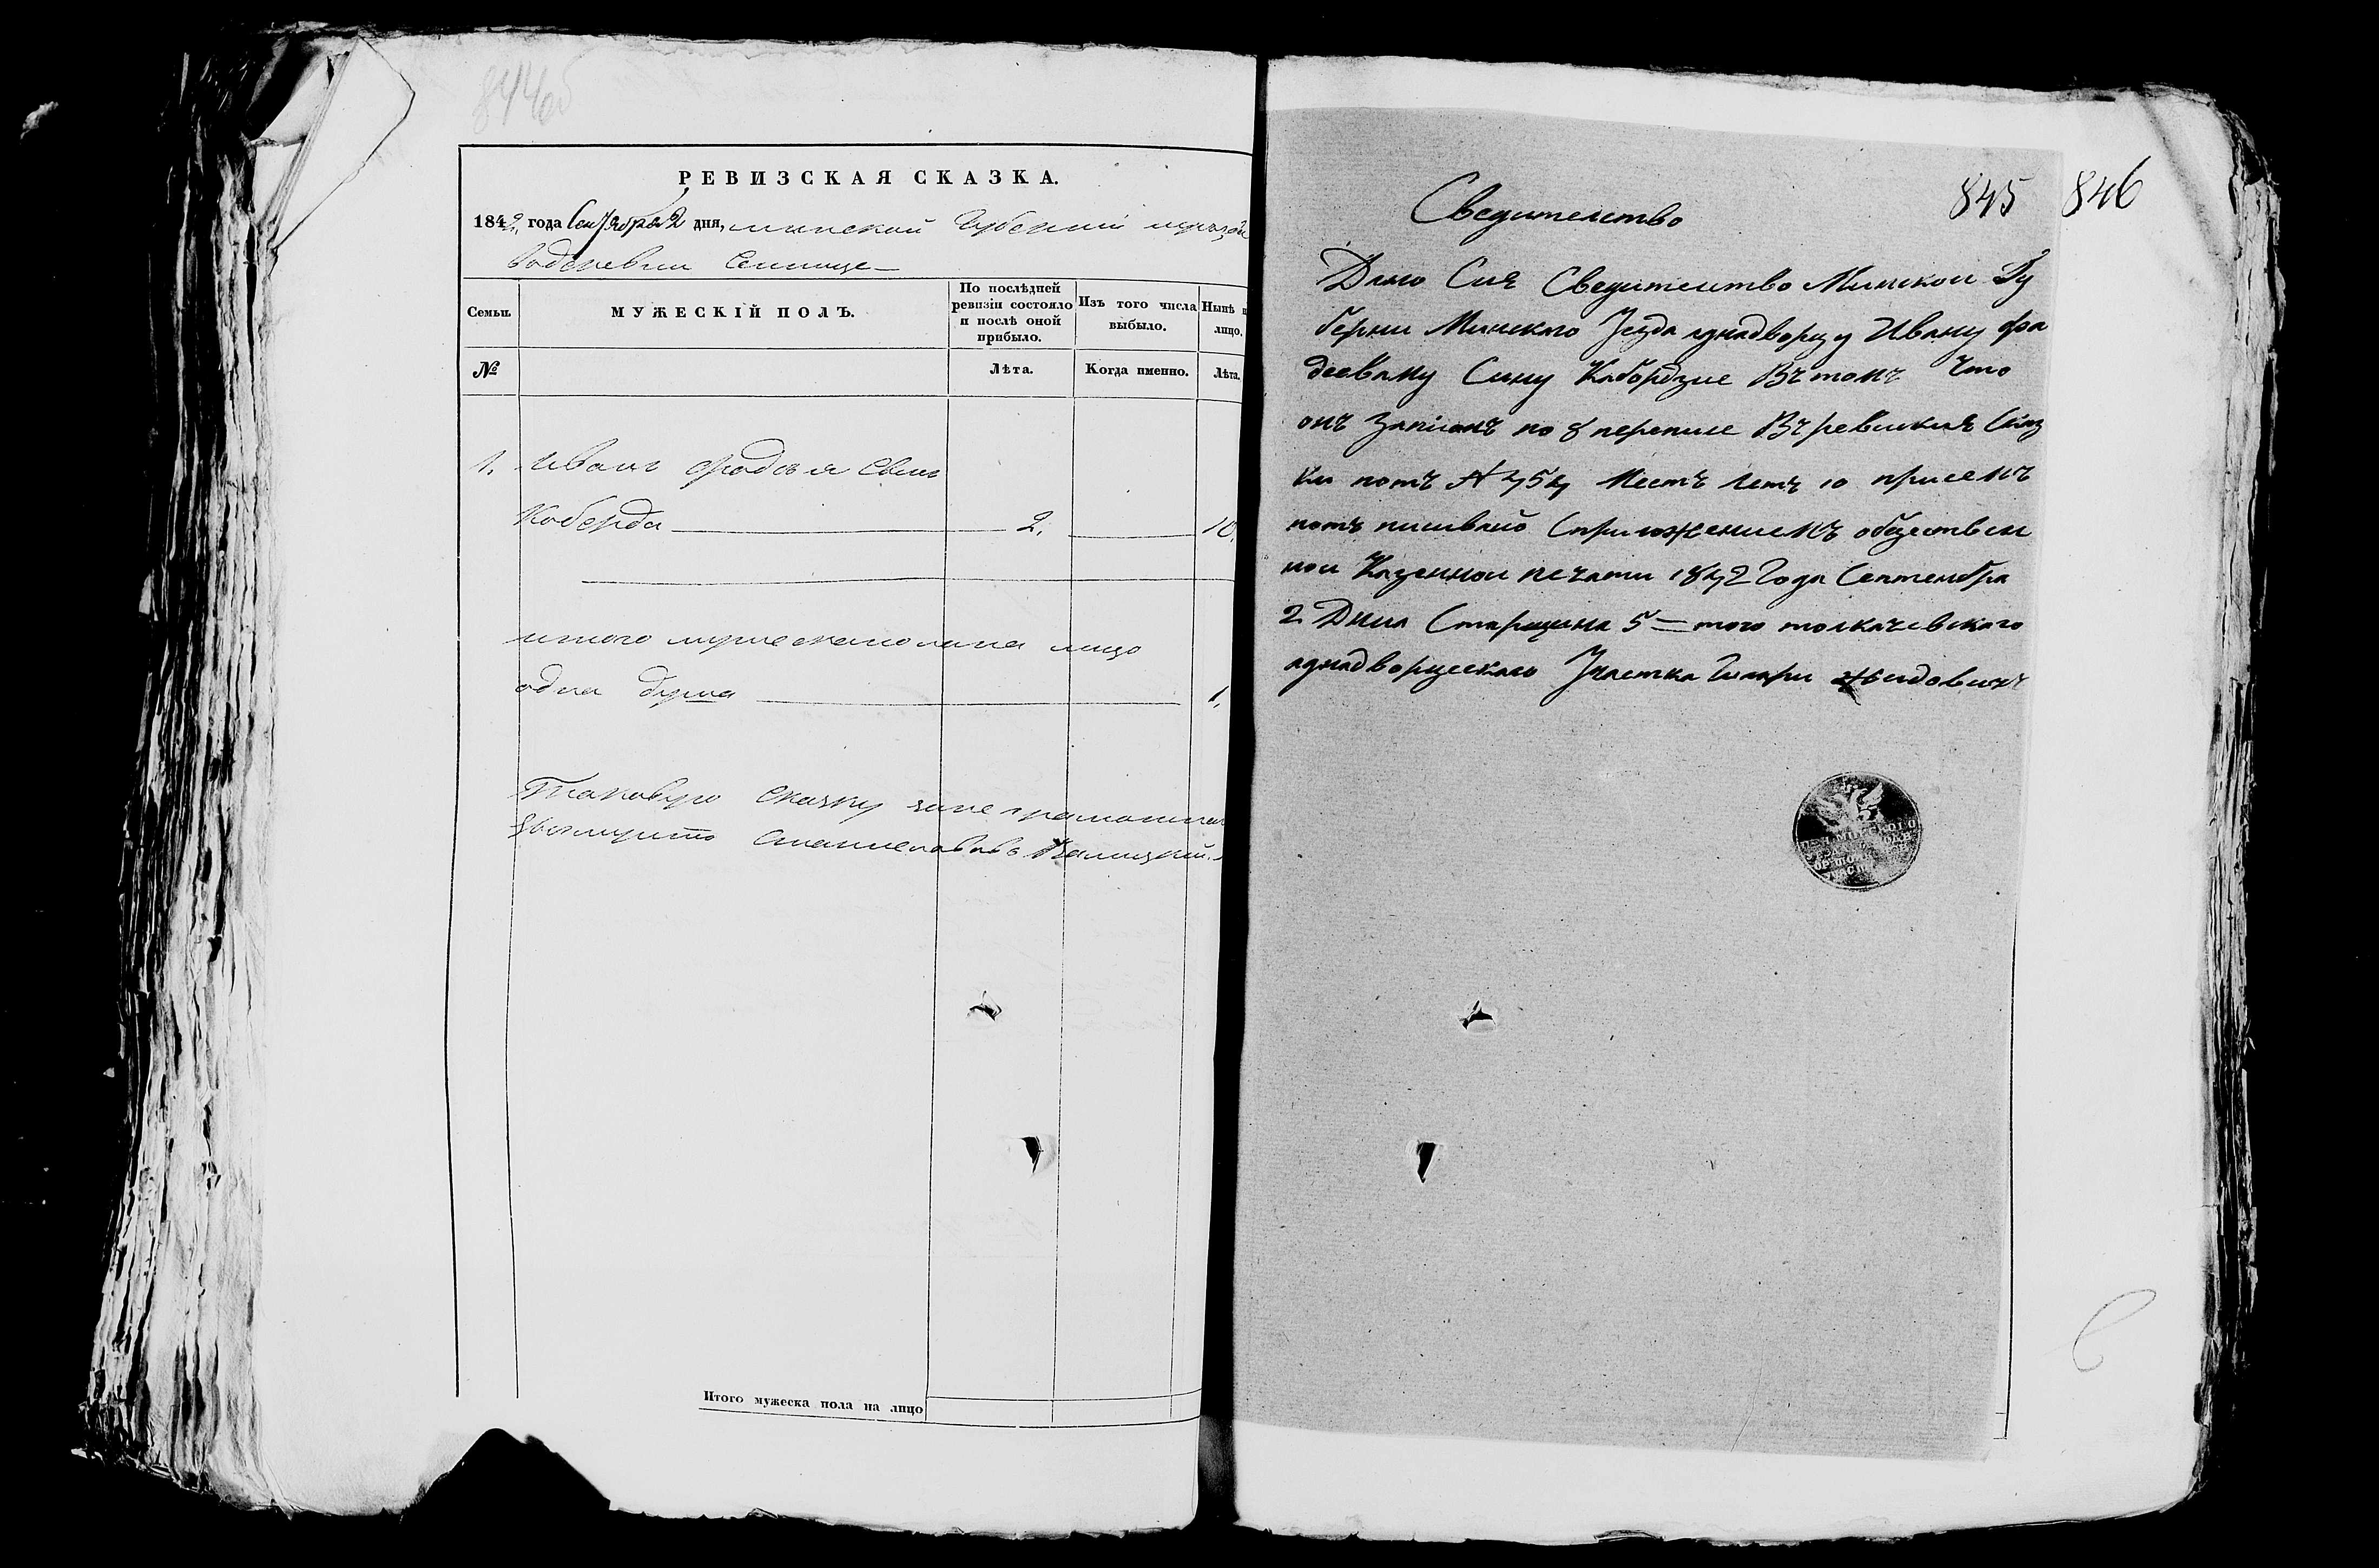 844об
РЕВИЗСКАЯ СКАЗКА.
1842 года Сентября 2 дня, минской Губернии
деревни Сеннице
Семьи.
МУЖЕСКІЙ ПОЛЪ.
По послѣдней
ревизіи состояло
и послѣ оной
прибыло.
Изъ того числа
выбыло.
Нынѣ н
лицо.
№
Лѣта.
Когда именно.
Лѣта.
1. Иванъ Фадѣя Сынъ
Коберда 2. 10.
итого мужеска пола на лицо
одна душа 1.
Таковую сказку
Станиславовъ
Итого мужеска пола на лицо
845 846
Сведителство
Дано Сие Сведителство Минскои Гу
берни Минскаго Уезда аднадворцу Ивану Фа
деевому Сину Кабордзие Въ томъ Что
онъ Записанъ по 8 переписе Въ ревиския Сказ
ки потъ № 454 Местъ летъ 10 присемъ
потъ писиваю Сприложениемъ обществен
нои Казеннои печати 1842 Года Септембра
2 Дния Старшина 5=того толкачевскаго
аднадворцескаго Участка